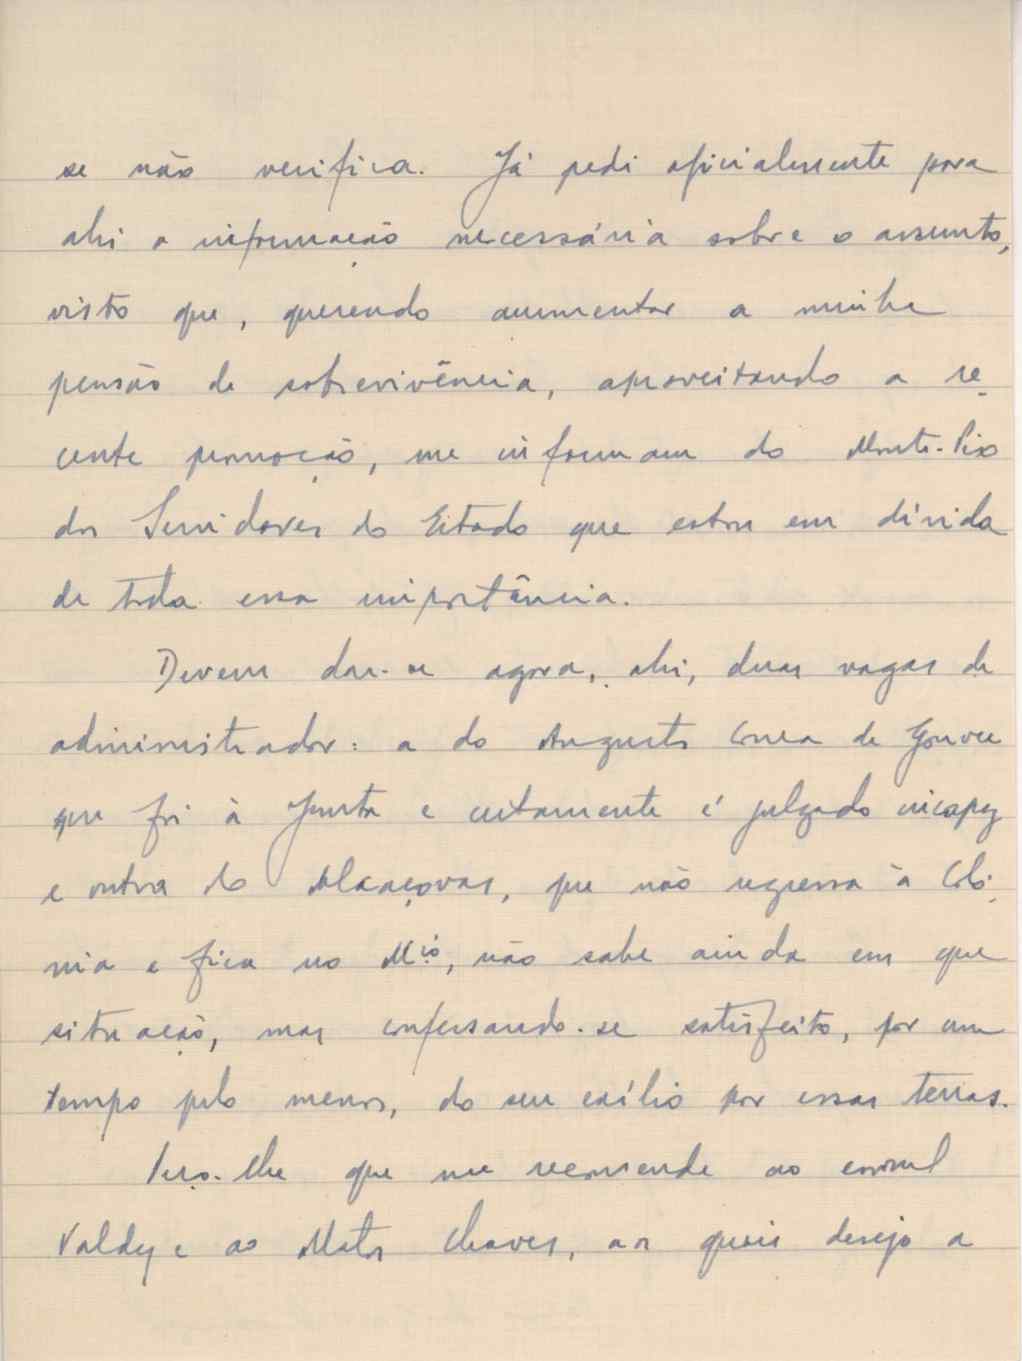 se não verifica. Já pedi oficialmente para
ahi a informação necessária sobre o assunto,
visto que, querendo aumentar a minha
pensão de sobrevivência, aproveitando a re-
cente promoção, me informam do Monte-Pio
dos Servidores do Estado que estou em dívida
de toda essa importância.
Devem dar-se agora, ahi, duas vagas de
administrador: a do Augusto Correa de Gouvea
que foi à Junta e certamente é julgado incapaz
e outra do Alcaçovas, que não regressa à Coló-
nia e fica no Mio, não sabe ainda em que
situação, mas confessando-se satisfeito, por um
tempo pelo menos, do seu exílio por essas terras.
Peço-lhe que me recomende ao consul
Valdez e ao Matos Chaves, aos quais desejo a